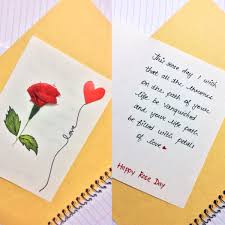 love
This rose day I wish
that all the thrones
on the path of your
life be vanquished
and your life path
be filled with petals
of love
Happy Rose Day